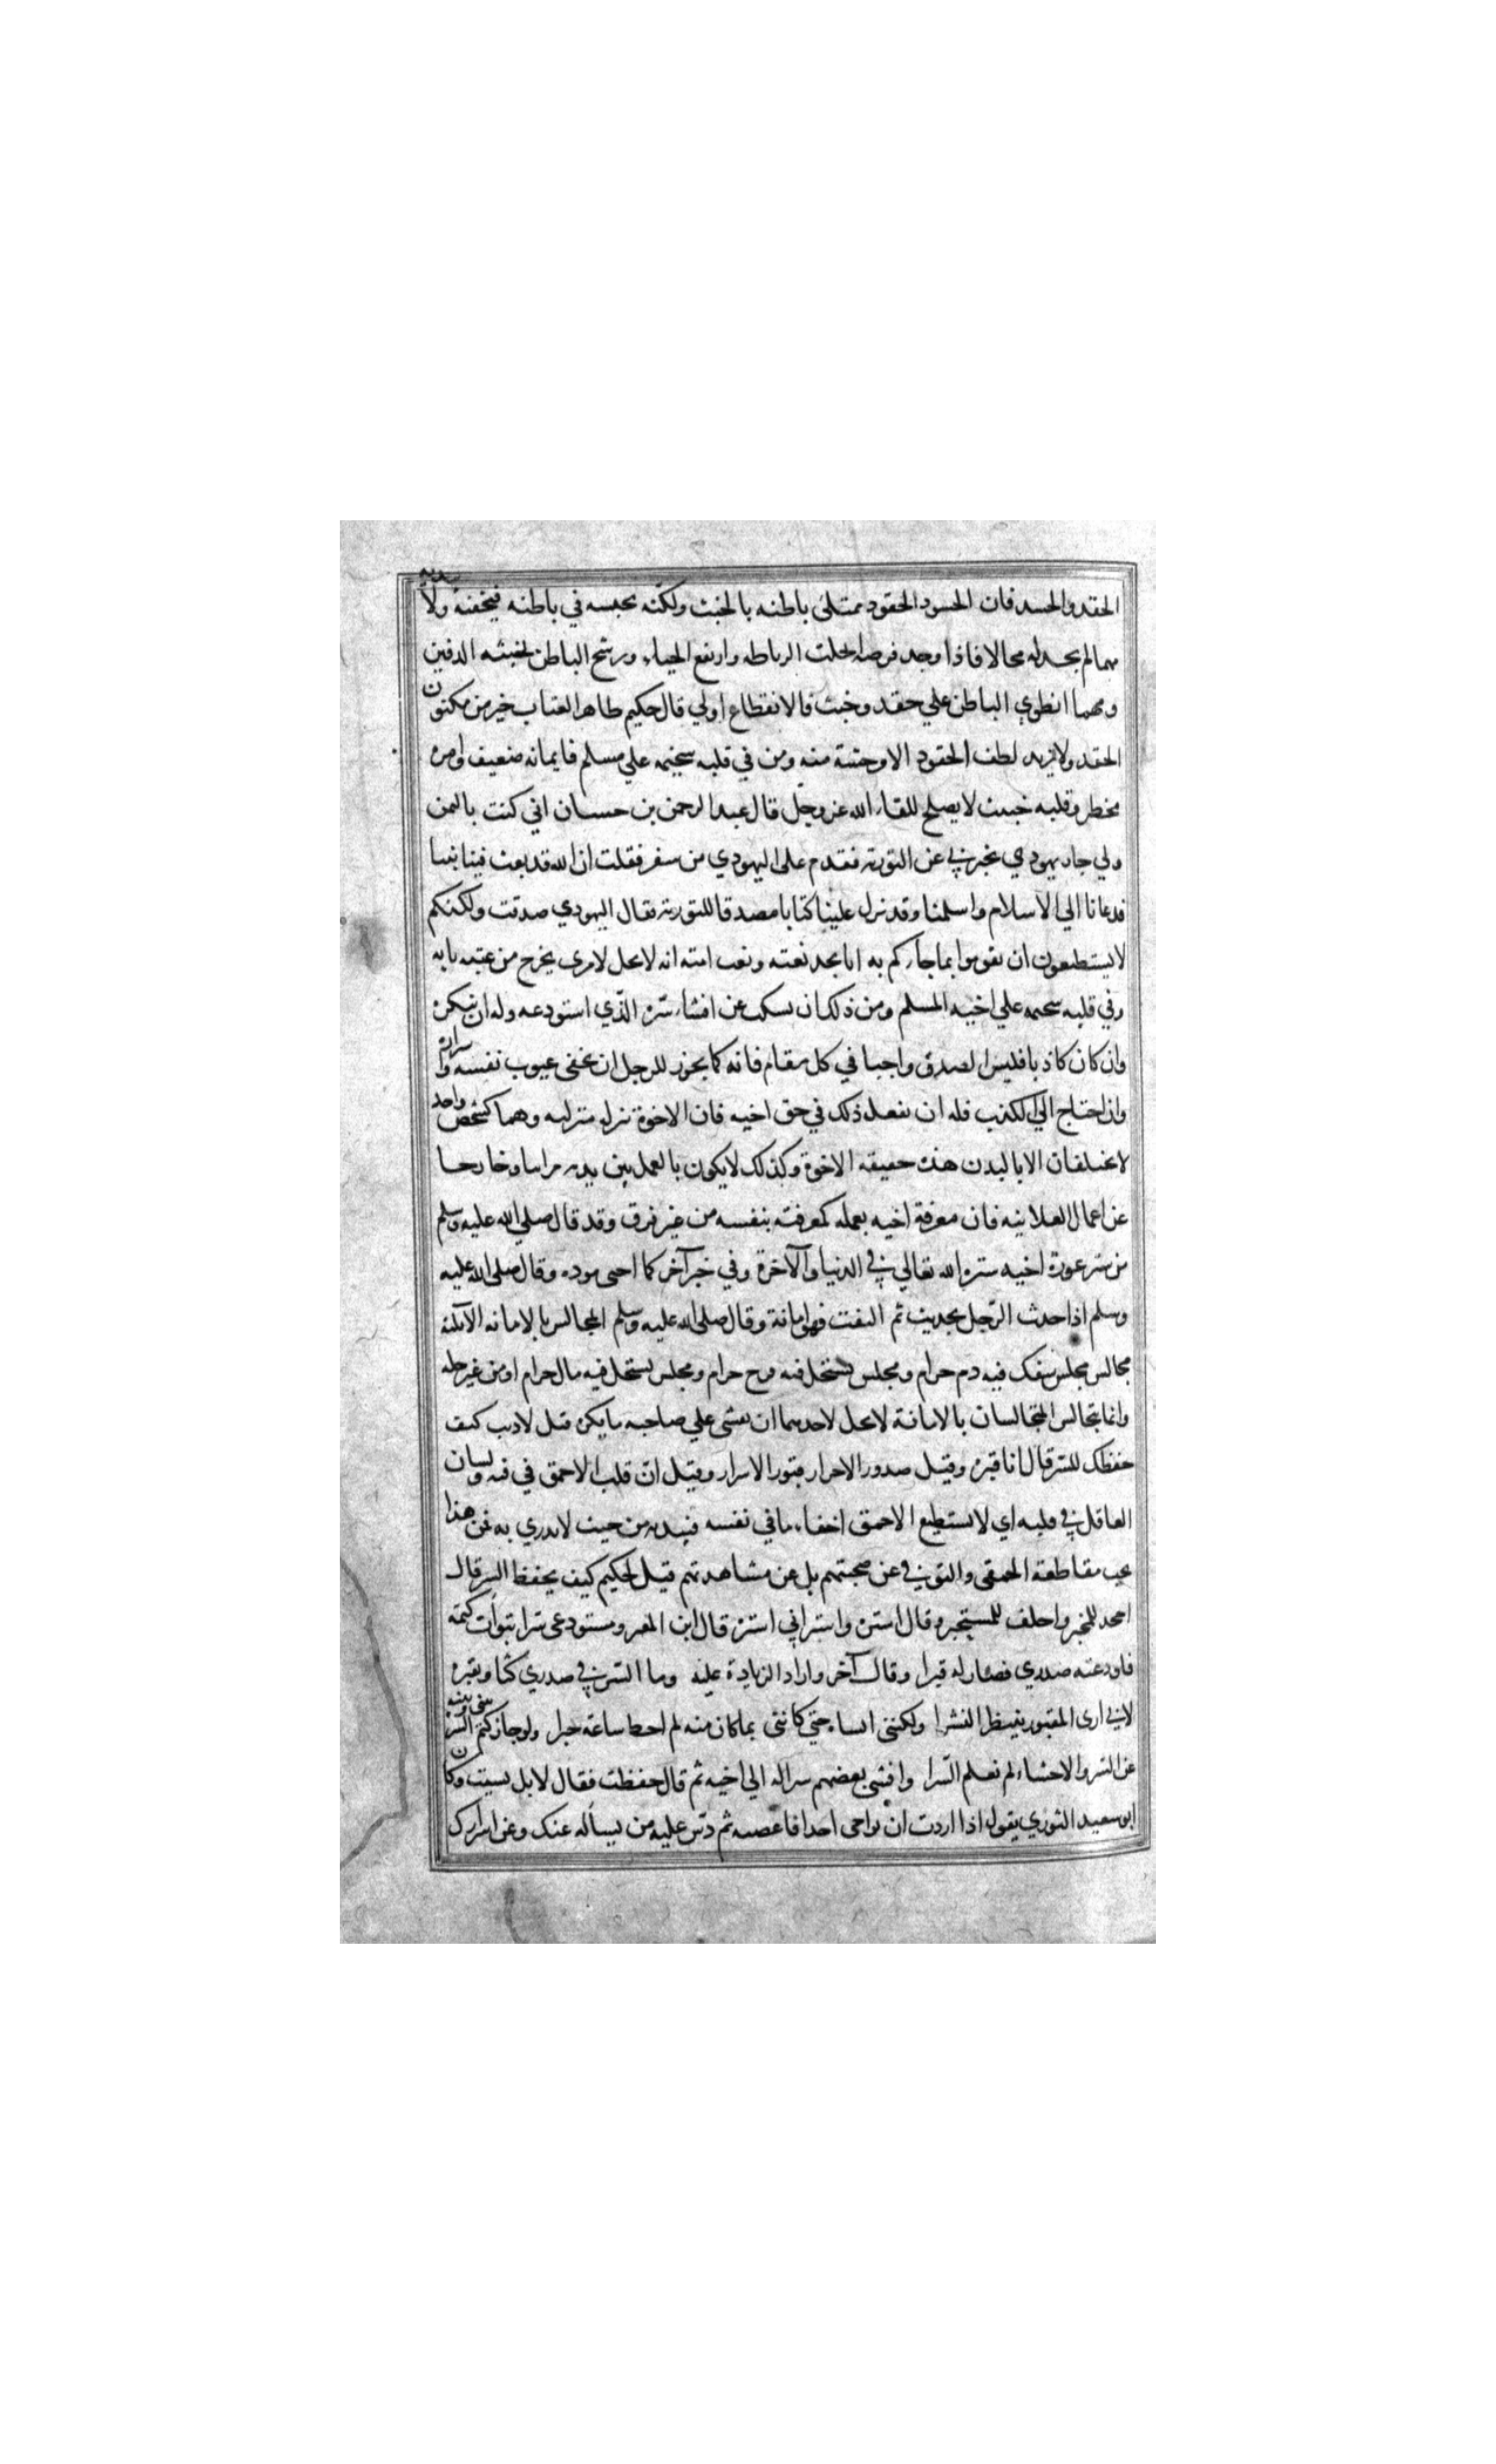 الحقد والحسد فان الحسود الحقود ممتلئ باطنه بالخبث ولكنه يحبسه في باطنه فيخفيه ولا يبديه
مهما لم يجد له مجالا فاذا وجد فرصه انحلت الرابطه وارتفع الحياء ورشح الباطن لخبثه الدفين
ومهما انطوي الباطن علي حقد وخبث فالانقطاع اولي قال حكيم ظاهر العتاب خير من مكنون
الحقد ولا يزيد لطف الحقود الا وحشة منه ومن في قلبه سخيمه علي مسلم فايمانه ضعيف وامره
مخطر وقلبه خبيث لا يصلح للقاء الله عز وجل قال عبد الرحمن بن حسان اني كنت باليمن
ولي جار يهودي يخبرني عن التورته فقدم على اليهودي من سفر فقلت ان الله قد بعث فينا نبيا
فدعانا الي الاسلام واسلمنا وقد نزل علينا كتابا مصدقا للتوريه فقال اليهودي صدقت ولكنكم
لا تستطيعون ان تقوموا بما جاءكم به انا نجد نعته ونعت امته انه لا يحل لامرى يخرج من عتبه بابه
وفي قلبه سخيمه علي اخيه المسلم ومن ذلك ان يسكت عن افشاء سره الذي استودعه وله ان ينكره
وان كان كاذبا فليس الصدق واجبا في كل مقام فانه كما يجوز للرجل ان يخفى عيوب نفسه واسراره
وان احتاج الي الكذب فله ان يفعل ذلك في حق اخيه فان الاخوة تنزله منزلته وهما كشخص واحد
لا يختلفان الا بالبدن هذه حقيقه الاخوة وكذلك لا يكون بالعمل بين يديه مراييا وخارجا
عن اعمال العلانيه فان معرفة اخيه بعمله كمعرفته بنفسه من غير فرق وقد قال صلي الله عليه وسلم
من ستر عورة اخيه ستره الله تعالي في الدنيا والآخرة وفي خبر آخر كما احى موده وقال صلي الله عليه
وسلم اذا حدث الرجل بحديث ثم التفت فهو امانة وقال صلي الله عليه وسلم المجالس بالامانه الا ثلثه
مجالس مجلس يسفك فيه دم حرام ومجلس يستحل فيه فرج حرام ومجلس يستحل فيه مال حرام او من غير حله
وانما يتجالس المتجالسان بالامانة لا يحل لاحدهما ان يفشى علي صاحبه ما يكره قيل لاديب كيف
حفظك للسر قال انا قبره وقيل صدور الاحرار قبور الاسرار وقيل ان قلب الاحمق في فيه ولسان
العاقل في قلبه اي لا يستطيع الاحمق اخفاء ما في نفسه فيبديه من حيث لا يدري به فمن هذا
يجب مقاطعة الحمقى والتوقي عن صحبتهم بل عن مشاهدتهم قيل لحكيم كيف يحفظ السر قال
اجحد للمخبر واحلف للمستخبر وقال استره واستر اني استره قال ابن المعر ومستودعى سرا تبوأت كتمه
فاودعته صدري فصار له قبرا وقال آخر واراد الزيادة عليه وما السر في صدري كثاو بقبره
لاني ارى المقبور ينتظر النشرا ولكننى انساه حتي كانني بما كان منه لم احط ساعة خبرا ولو جاز كتم السر بينى وبينه
عن السر والاحشاء لم نعلم السرا وافشى بعضهم سرا له الي اخيه ثم قال حفظت فقال لا بل نسيت وكان
ابو سعيد الثوري يقول اذا اردت ان تواخى احدا فاغضبه ثم دس عليه من يسأله عنك وعن اسرارك